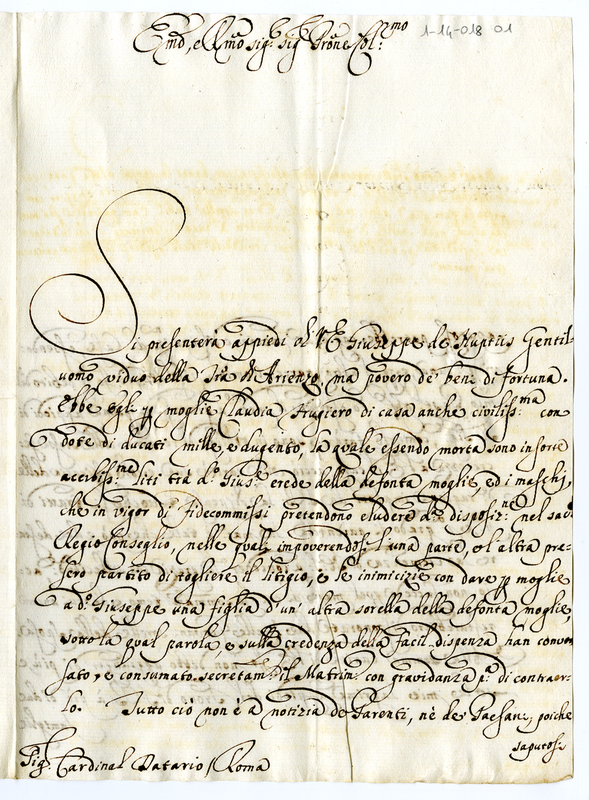 1-14-018 01
Em̃o, e R̃mo Sig: Sig Prone Col:mo
Si presenterà appiedi di V E Giuseppe de Nuptiis Gentil=
uomo viduo della Tra di Arienzo, ma povero de' beni di fortuna.
Ebbe egli p moglie Claudia Rugiero di casa anche civiliss:ma con
dote di ducati mille, e dugento, la quale essendo morta sono insorte
acerbiss:me liti trà d:o Gius:e erede della defonta moglie, ed i maschi,
che in vigor di fidecommissi pretendono eludere d:a disposiz:ne nel
Regio Conseglio, nelle quali impoverendosi l'una parte, e l'altra pre=
sero partito di togliere il litigio, e le inimicizie con dare p moglie
a d:o Giuseppe una figlia d'un' altra sorella della defonta moglie,
sotto la qual parola, e sulla credenza della facil dispenza han conver
sato, e consumato secretam:te il Matrim: con gravidanza p:a di contraer=
lo. Tutto ciò non è a notizia de Parenti, nè de Paesani, poiche
saputosi
Sig: Cardinal Datario / Roma